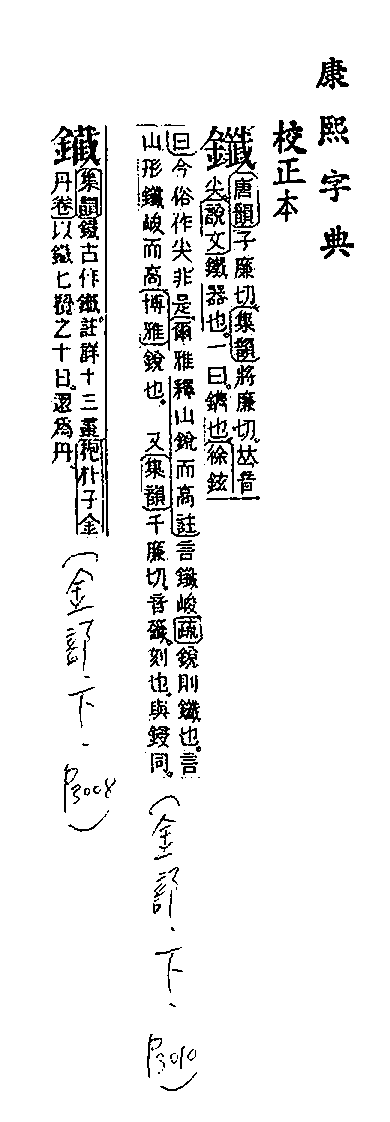 康熙字典
校正本
鑯唐韻子廉切集韻將廉切𠀤音
尖說文鐵器也一曰鐫也徐鉉
曰今俗作尖非是爾雅釋山銳而高註言鑯峻疏銳則鑯也言
山形鑯峻而高博雅銳也 又集韻千廉切音籤刻也與鋟同
集韻鐵古作䥫註詳十三畫抱朴子金
丹卷以鐵匕攪之十日還爲丹
(金部.下.P3010)
(金部.下.P3008)